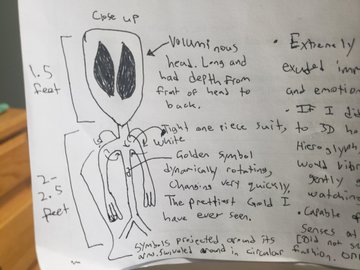 Close up
Voluminous
head. Long and
had depth from
front of head to
back.
1.5
feet
Tight one piece suit,
white
Golden symbol
dynamically rotating,
Changing very quickly,
The prettiest Gold I
have ever seen.
2-
2.5
feet
Symbols projected around its
arm. Swiveled around in circular fashion.
• Extremely
exuded
and emotion
• If I did
to 3D
Hieroglyph
would vibr
gently
watching
• Capable of
Senses at
Could not